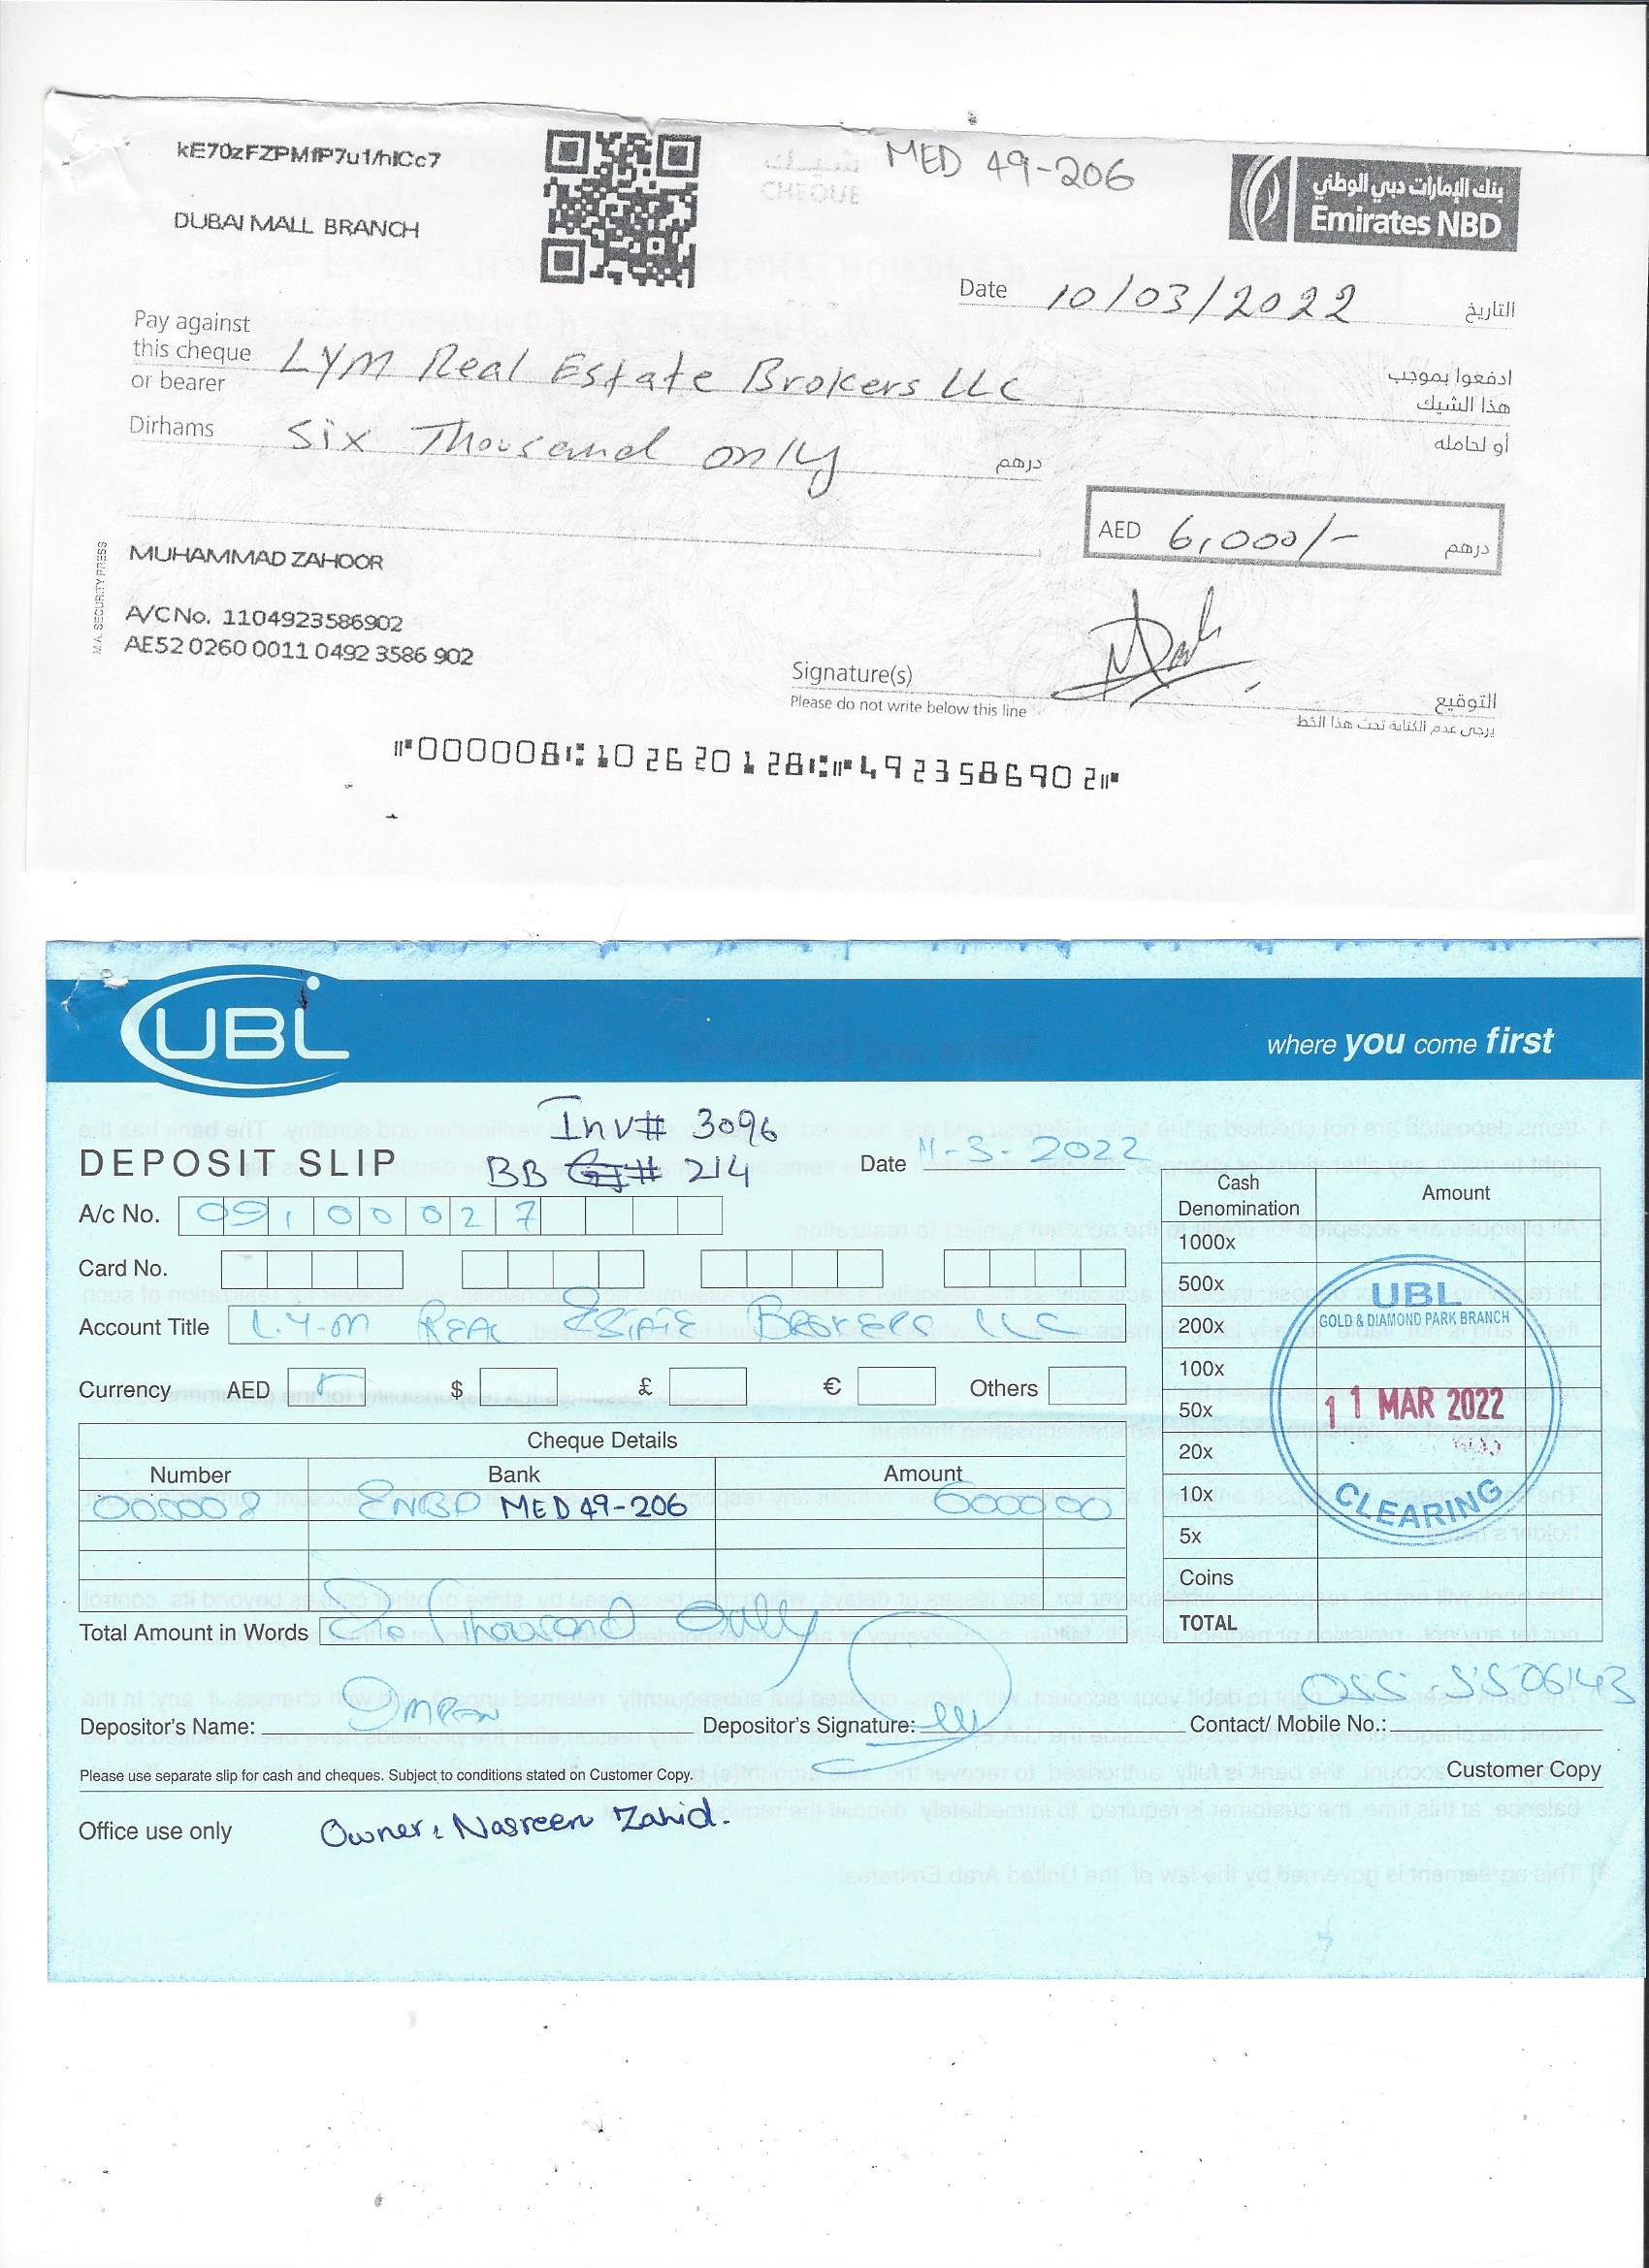 kE70zFZPMfP7u1/hICc7
شيك
CHEQUE
MED 49-206
بنك الإمارات دبي الوطني
Emirates NBD
DUBAI MALL BRANCH
Date 10/03/2022 التاريخ
Pay against
this cheque
or bearer
LYM Real Estate Brokers LLC
ادفعوا بموجب
هذا الشيك
أو لحامله
Dirhams Six Thousand only درهم
AED 6,000/- درهم
MUHAMMAD ZAHOOR
M.A. SECURITY PRESS
A/C No. 1104923586902
AE52 0260 0011 0492 3586 902
Signature(s) التوقيع
Please do not write below this line يرجى عدم الكتابة تحت هذا الخط
⑈000008⑆102620128⑆⑈4923586902⑈
UBL where you come first
Inv# 3096
DEPOSIT SLIP BB # 214 Date 11-3-2022
A/c No. 09100027
Card No.
Account Title L.Y.M REAL ESTATE BROKERS LLC
Currency AED $ £ € Others
Cheque Details
Number Bank Amount
000008 ENBD MED 49-206 6000 00
Total Amount in Words Six Thousand Only
Cash Denomination Amount
1000x
500x
200x
100x
50x
20x
10x
5x
Coins
TOTAL
UBL
GOLD & DIAMOND PARK BRANCH
11 MAR 2022
CLEARING
Depositor's Name: Imran Depositor's Signature: Contact/ Mobile No.: 055-5506143
Please use separate slip for cash and cheques. Subject to conditions stated on Customer Copy. Customer Copy
Office use only Owner: Nasreen Zahid.